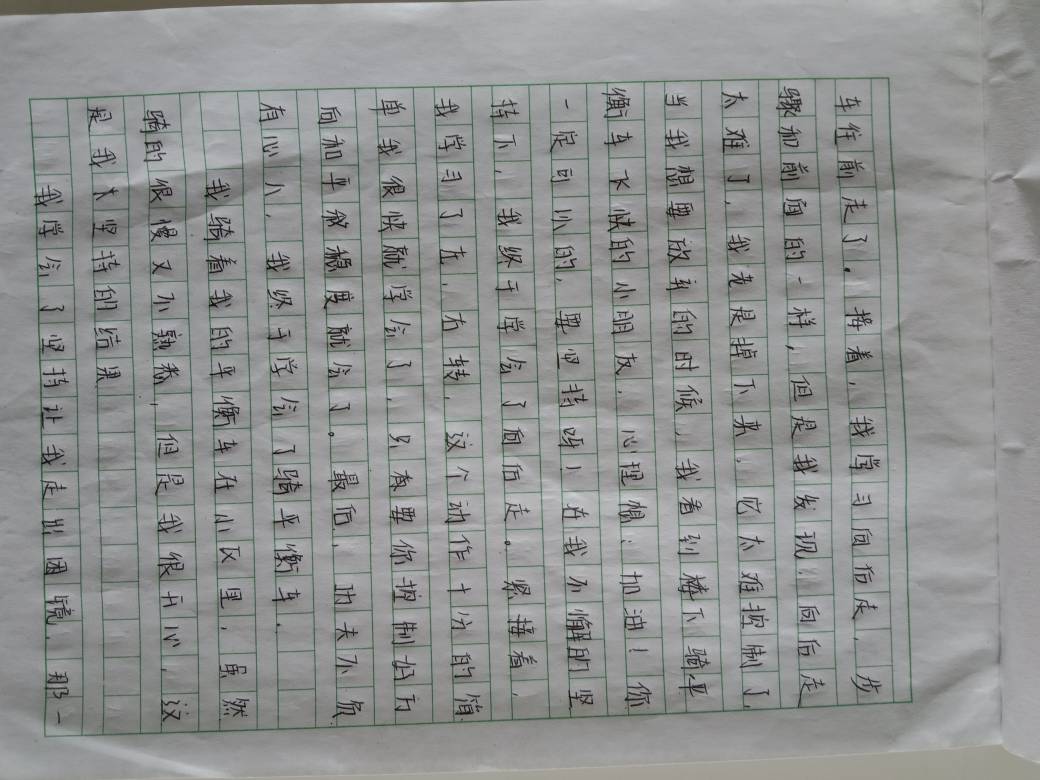 车往前走了。接着，我学习向后走，步
骤和前面的一样，但是我发现：向后走
太难了，我老是掉下来，它太难控制了，
当我想要放弃的时候，我看到楼下骑平
衡车飞快的小朋友，心理想：加油！你
一定可以的，要坚持呀！在我不懈的坚
持下，我终于学会了向后走。紧接着，
我学习了左、右转，这个动作十分的简
单我很快就学会了，只要你控制好方
向和平稳度就会了。最后，功夫不负
有心人，我终于学会了骑平衡车。
我骑着我的平衡车在小区里，虽然
骑的很慢又不熟悉，但是我很开心，这
是我坚持的结果
我学会了坚持让我走出困境，那一